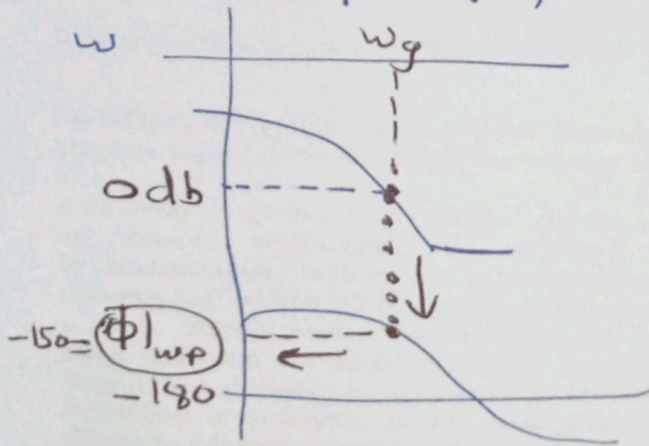 w wg
0 db
-150 = Φ|wp
-180